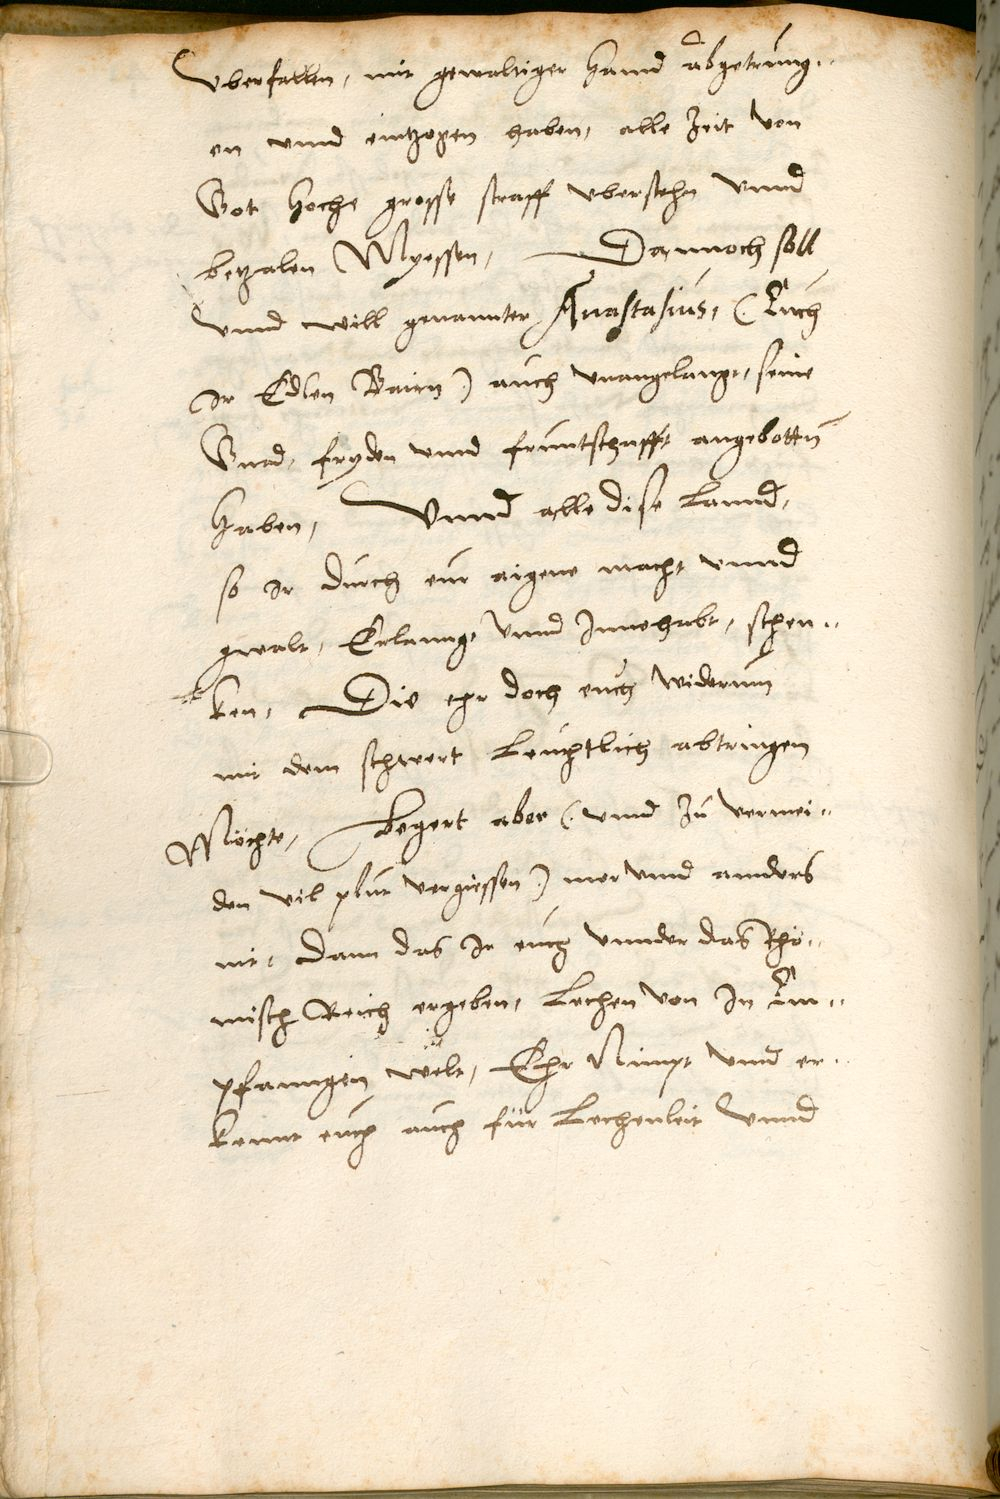 vberfallen, mit gewaltiger hannd abgetrung¨
en vnnd entzogen haben, alle Zeit von
Got hoche grosse straff vberstehn vnnd
betzalen Myessen, Dannoch soll
vnnd will genannter Anastasius, (: Euch
Ir Edlen Bairn :) auch vnangelangt, seine
Gnad, fryden vnnd fruntschafft angebotten
haben, Vnnd alle dise Lannd,
so Ir durch eur aigene macht vnnd
gwalt, Erlanngt vnnd Innehabt, schen¨
ken, Die ehr doch euch widerum
mit dem schwert Leuchtlich abtringen
Möchte, begert aber (: vnnd zu vermei¨
den vil plut vergiessen :) mer vnnd annders
nit, Dann das Ir euch vnnder das Rhö¨
misch Reich ergeben, Lechen von In Em¨
pfanngen welt, Ehr Nimpt vnnd er¨
kennt euch auch für Lechenleit vnnd